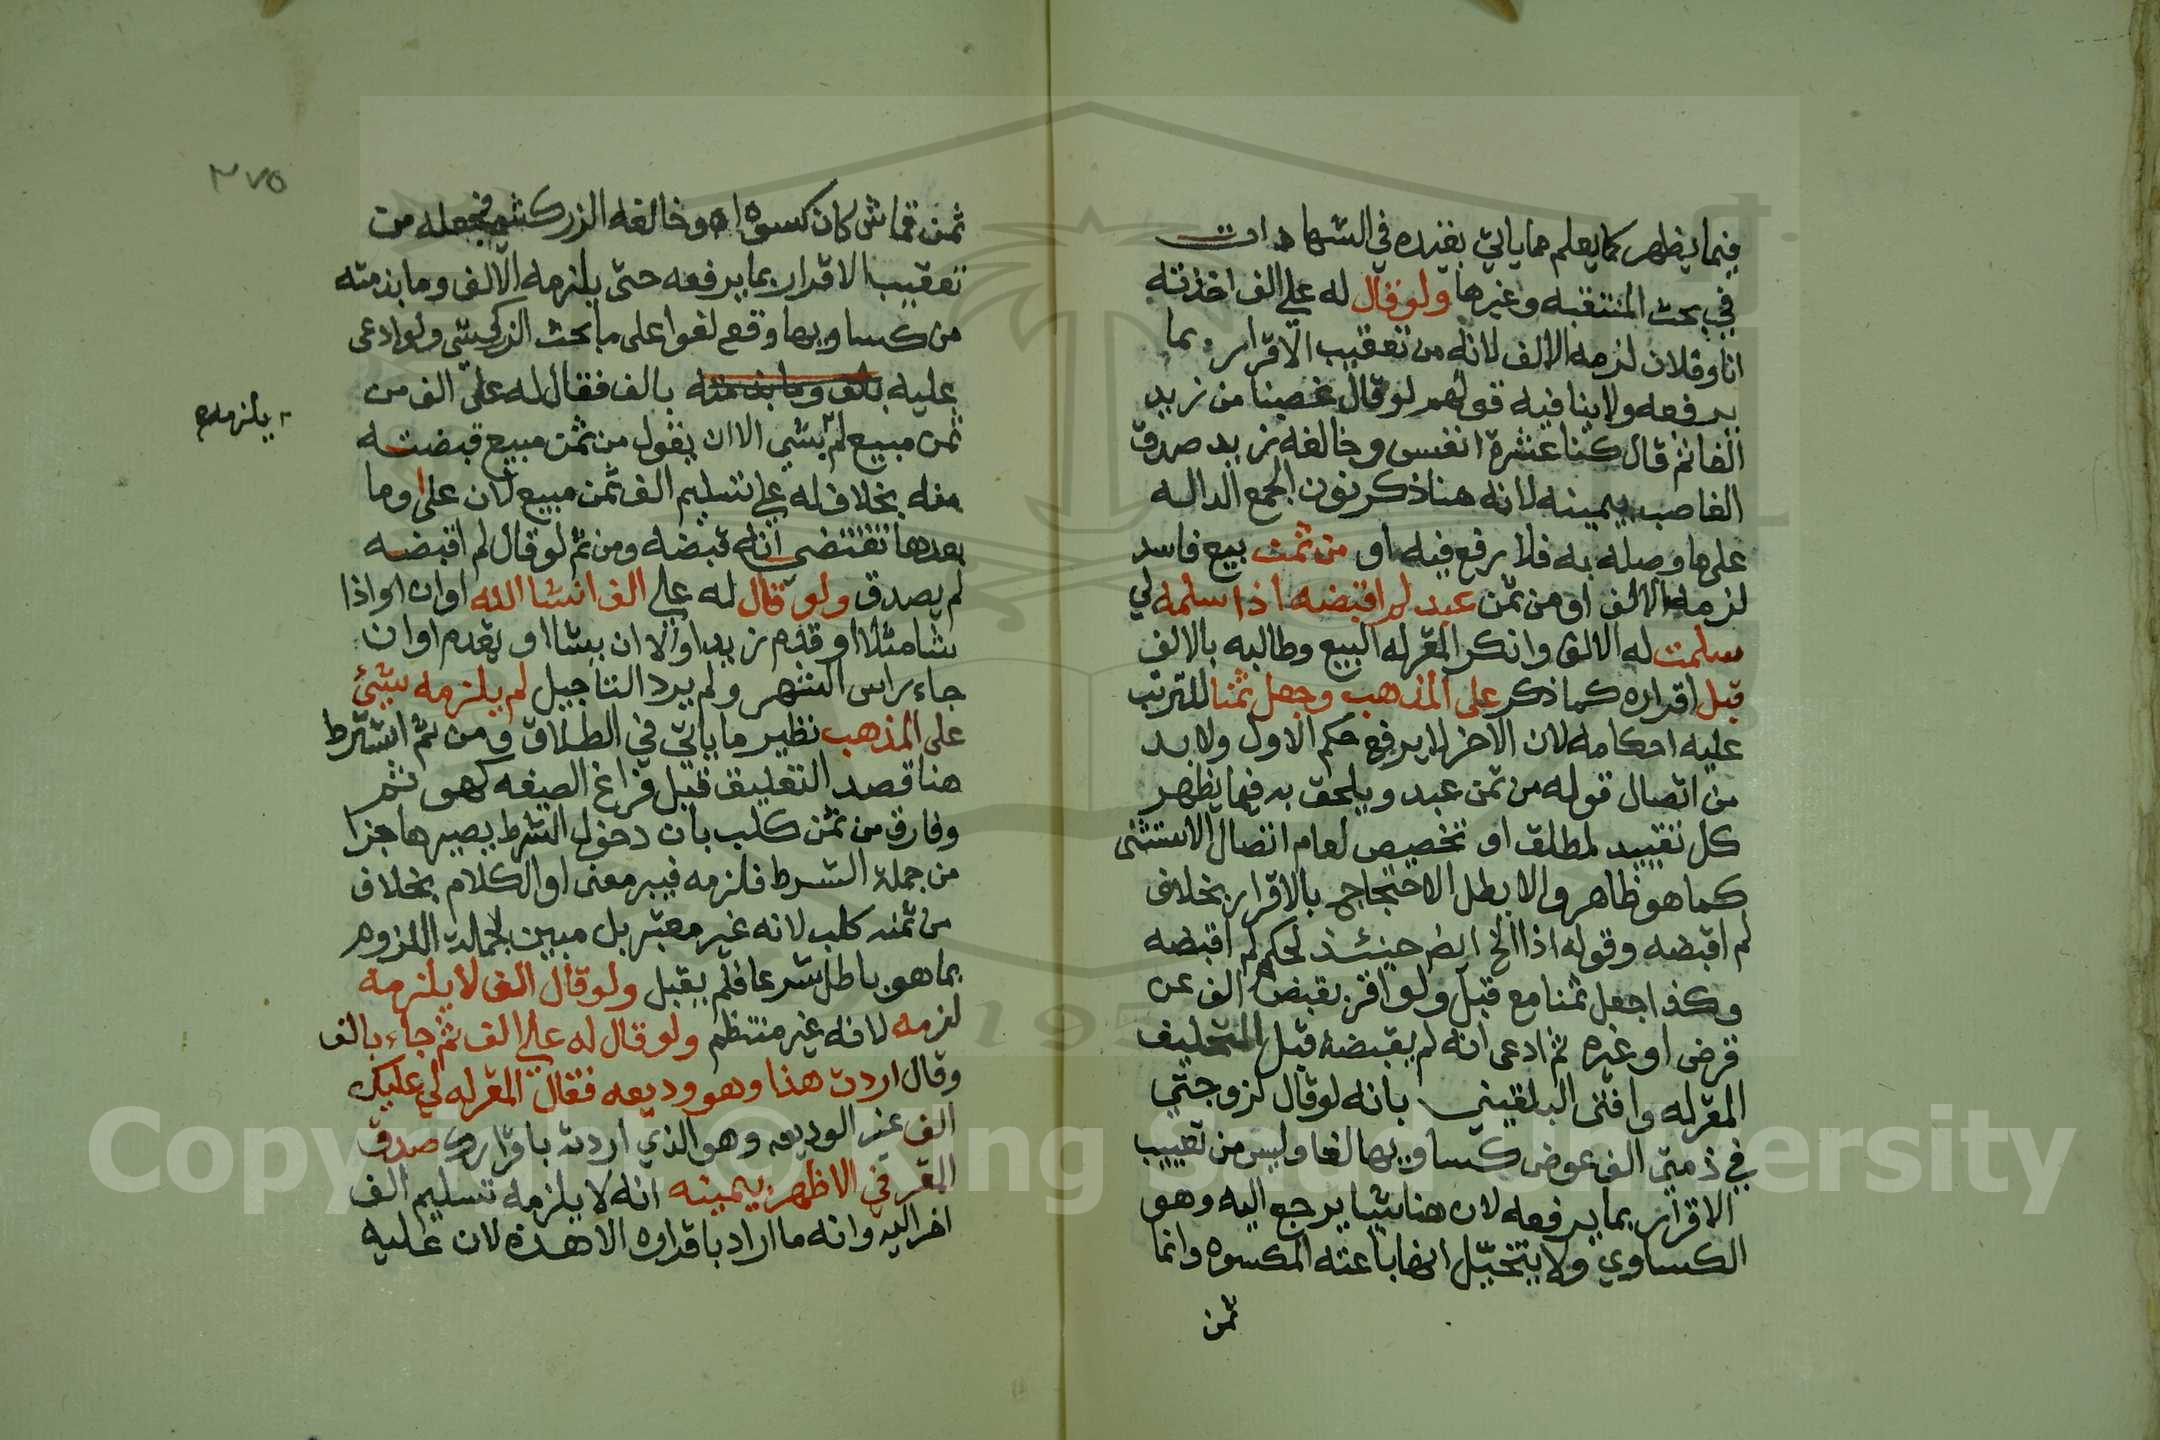 فيما يظهر كما يعلم مما ياتي بقيده في الشهادات
في بحث المنتقبه وغيرها ولو قال له علي الف اخذته
انا وفلان لزمه الالف لانه من تعقيب الاقرار بما
يرفعه ولا ينافيه قولهم لو قال غصبنا من زيد
الفا ثم قال كنا عشرة انفس وخالفه زيد صدق
الغاصب بيمينه لانه هنا ذكر نون الجمع الداله
على ما وصله به فلا رفع فيه او من ثمن بيع فاسد
لزمه الالف او من ثمن عبد لم اقبضه اذا سلمه لي
سلمت له الالف وانكر المقر له البيع وطالبه بالالف
قبل اقراره كما ذكر على المذهب وجعل ثمنا للترتب
عليه احكامه لان الاخر لا يرفع حكم الاول ولا بد
من اتصال قوله من ثمن عبد ويلحق به فيما يظهر
كل تقييد لمطلق او تخصيص لعام اتصال الاستثنى
كما هو ظاهر والا بطل الاحتجاج بالاقرار بخلاف
لم اقبضه وقوله اذا الخ ايض حينئذ لحكم لم اقبضه
وكذا جعل ثمنا مع قبل ولو اقر بقبض الف عن
قرض او غيره ثم ادعى انه لم يقبضه قبل التحليف
المقر له وافتى البلقيني بانه لو قال لزوجتي
في ذمتي الف عوض كساويها لغا وليس من تعقيب
الاقرار بما يرفعه لان هنا شيا يرجع اليه وهو
الكساوي ولا يتخيل انها باعته المكسوه وانما
ثمن
٣٧٥
ثمن قماش كان كسوه اه وخالفه الزركشي فجعله من
تعقيب الاقرار بما يرفعه حتى يلزمه الالف وما بذمته
من كساويها وقع لغوا على ما بحث الزركشي ولو ادعى
عليه بالف وما بذمته بالف فقال له علي الف من
ثمن مبيع لم شي الا ان يقول من ثمن مبيع قبضته
يلزمه
منه بخلاف له علي تسليم الف ثمن مبيع لان على وما
بعدها تقتضي انه قبضه ومن ثم لو قال لم اقبضه
لم يصدق ولو قال له علي الف ان شا الله او ان او اذا
شا مثلا او قدم زيد او الا ان يشا او يقدم او ان
جاء راس الشهر ولم يرد التاجيل لم يلزمه شئ
على المذهب نظير ما ياتي في الطلاق ومن ثم اشترط
هنا قصد التعليق قبل فراغ الصيغه كهو ثم
وفارق من ثمن كلب بان دخول الشرط يصيرها جزا
من جملة الشرط فلزمه معنى او الكلام بخلاف
من ثمن كلب لانه غير معتبر بل مبين لجملة اللزوم
بما هو باطل شرعا فلم يقبل ولو قال الف لا يلزمه
لزمه لانه غير منتظم ولو قال له علي الف ثم جاء بالف
وقال اردت هذا وهو وديعه فقال المقر له لي عليك
الف غير الوديعه وهو الذي اردت باقرارك صدق
المقر في الاظهر بيمينه انه لا يلزمه تسليم الف
اخر اليه وانه ما اراد باقراره الا هذه لان عليه
Copyright © King Saud University